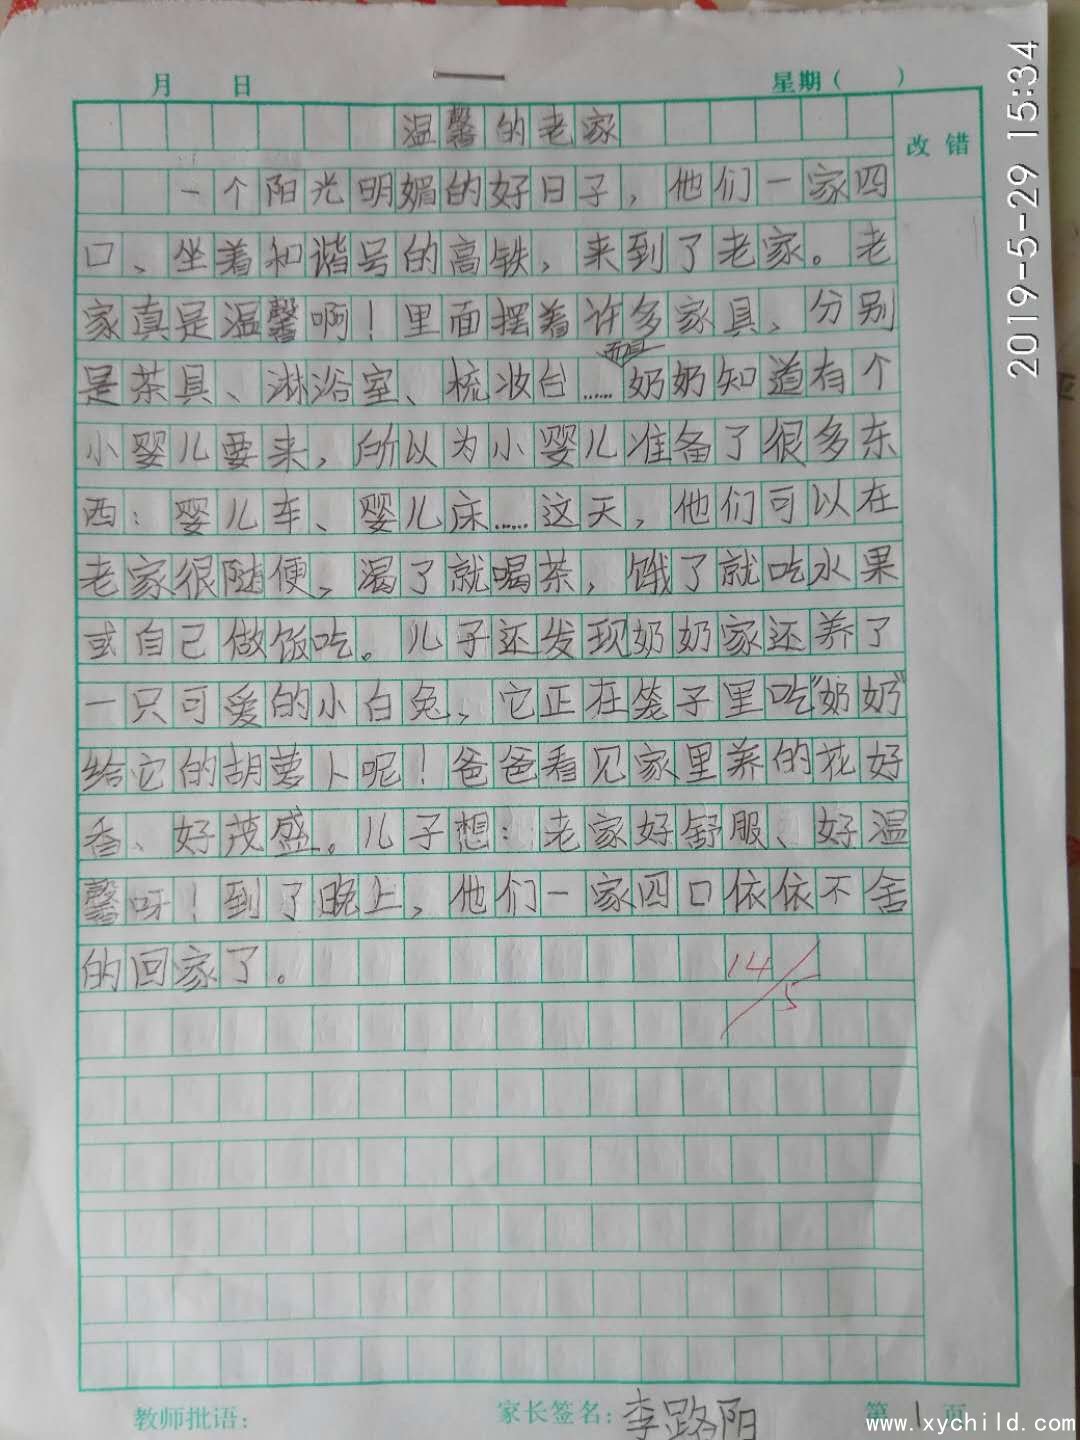 月 日 星期( )
改错
温馨的老家
一个阳光明媚的好日子,他们一家四
口、坐着和谐号的高铁,来到了老家。老
家真是温馨啊!里面摆着许多家具、分别
是茶具、淋浴室、梳妆台……奶奶知道有个
小婴儿要来,所以为小婴儿准备了很多东
西:婴儿车、婴儿床……这天,他们可以在
老家很随便、渴了就喝茶,饿了就吃水果
或自己做饭吃。儿子还发现奶奶家还养了
一只可爱的小白兔、它正在笼子里吃“奶奶”
给它的胡萝卜呢!爸爸看见家里养的花好
香、好茂盛。儿子想:老家好舒服、好温
馨呀!到了晚上,他们一家四口依依不舍
的回家了。
14/5
教师批语: 家长签名:李路阳 第1页
2019-5-29 15:34
www.xychild.com